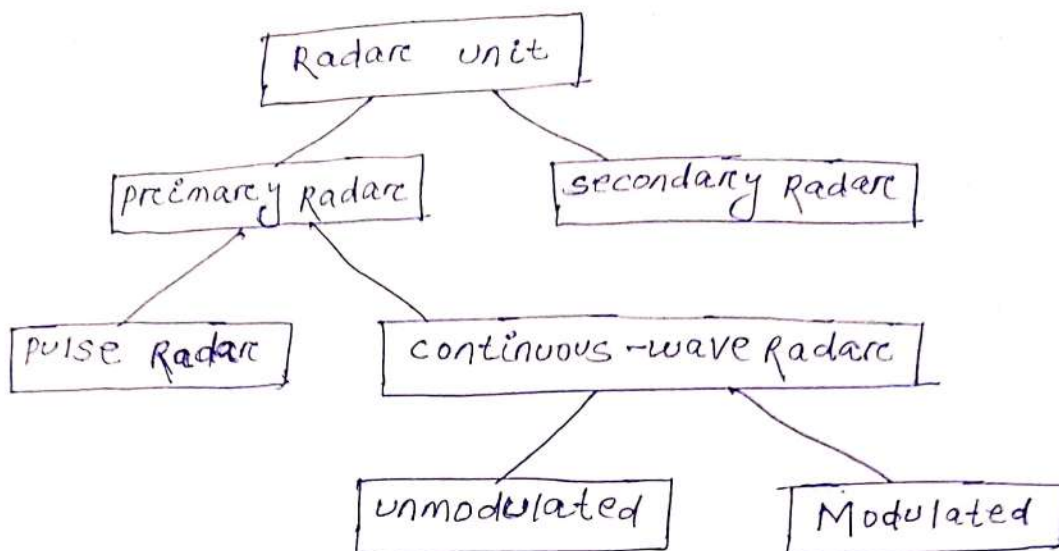 Radar unit
primary Radar
secondary Radar
pulse Radar
continuous-wave Radar
unmodulated
Modulated